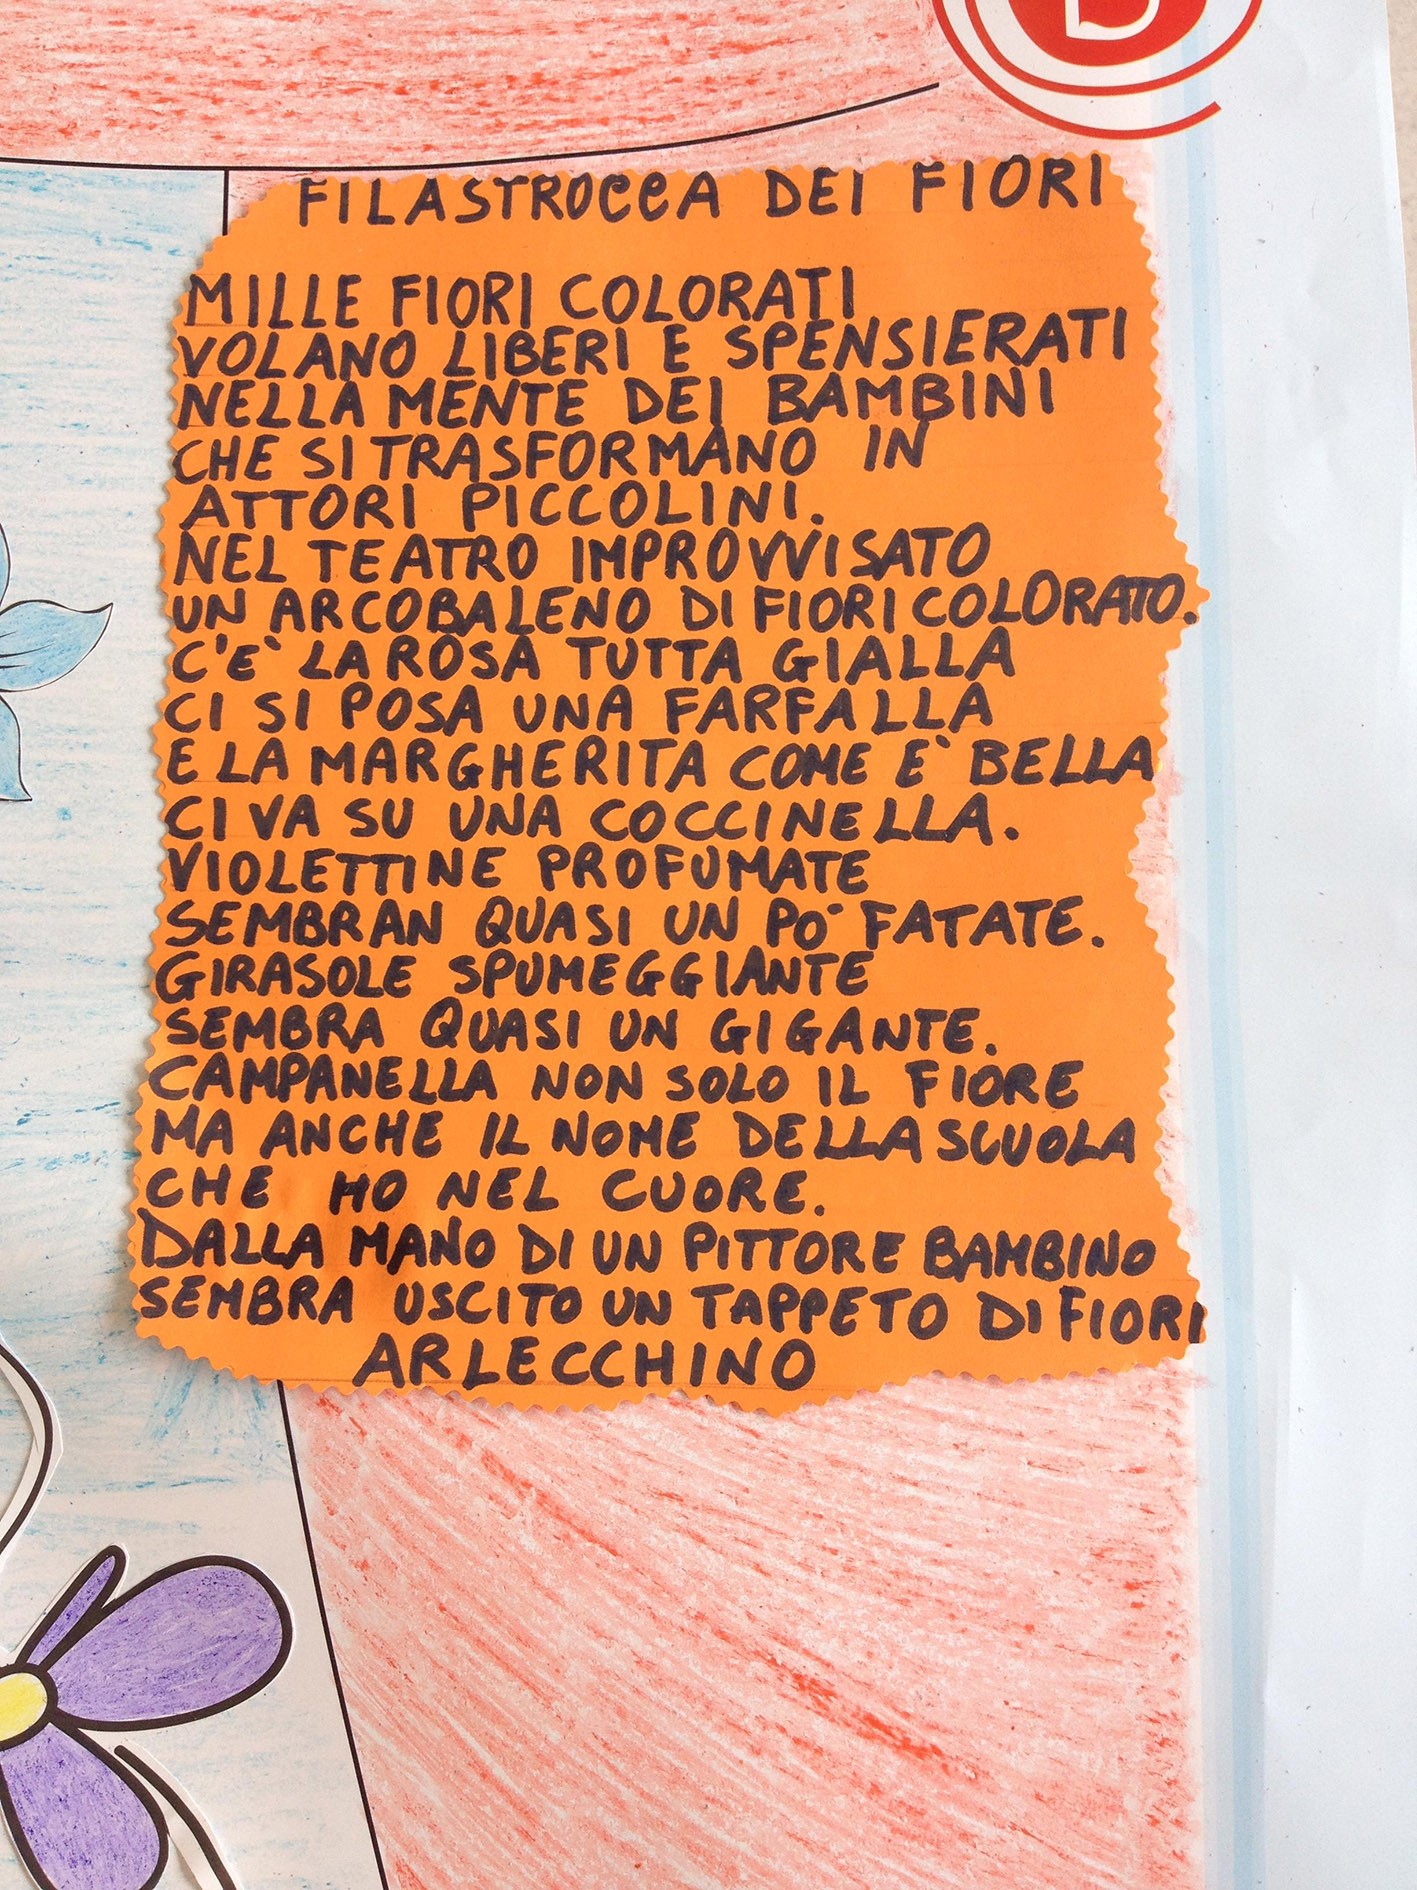 FILASTROCCA DEI FIORI
MILLE FIORI COLORATI
VOLANO LIBERI E SPENSIERATI
NELLA MENTE DEI BAMBINI
CHE SI TRASFORMANO IN
ATTORI PICCOLINI.
NEL TEATRO IMPROVVISATO
UN ARCOBALENO DI FIORI COLORATO.
C'E' LA ROSA TUTTA GIALLA
CI SI POSA UNA FARFALLA
E LA MARGHERITA COME E' BELLA
CI VA SU UNA COCCINELLA.
VIOLETTINE PROFUMATE
SEMBRAN QUASI UN PO' FATATE.
GIRASOLE SPUMEGGIANTE
SEMBRA QUASI UN GIGANTE.
CAMPANELLA NON SOLO IL FIORE
MA ANCHE IL NOME DELLA SCUOLA
CHE HO NEL CUORE.
DALLA MANO DI UN PITTORE BAMBINO
SEMBRA USCITO UN TAPPETO DI FIORI
ARLECCHINO